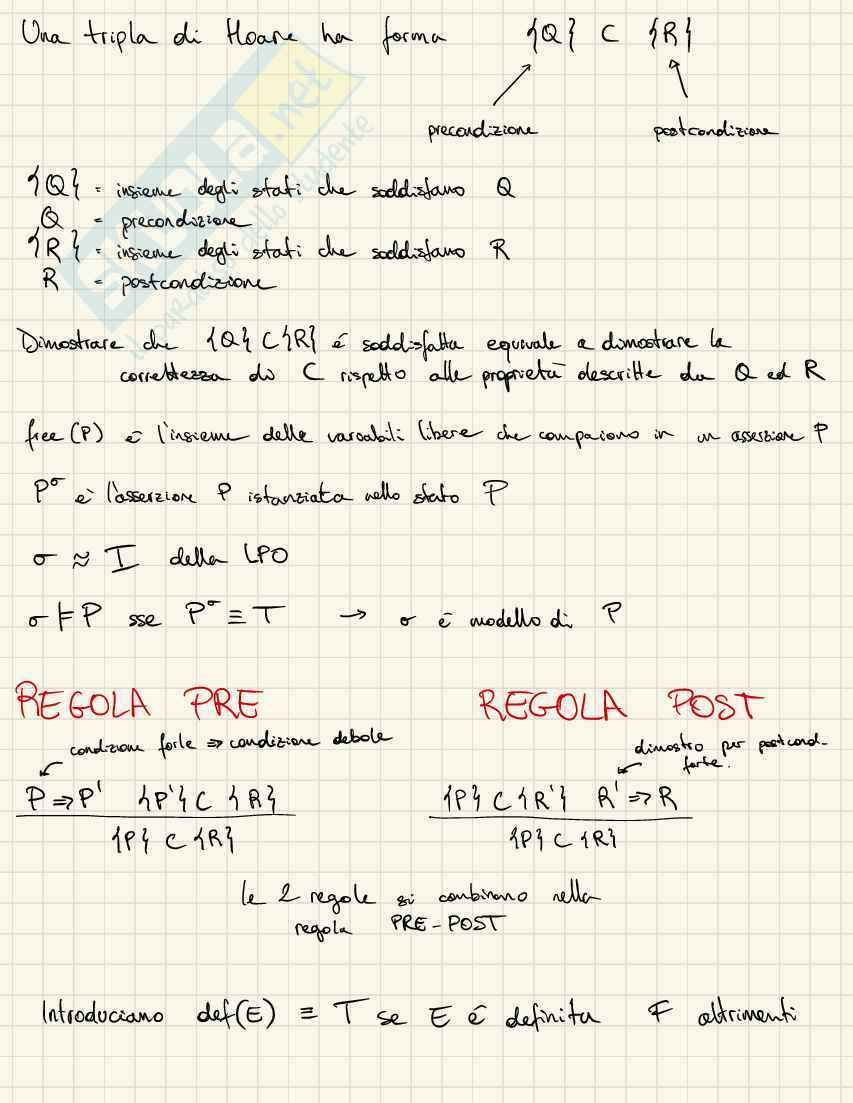 Una tripla di Hoare ha forma {Q} C {R}
precondizione postcondizione
{Q} = insieme degli stati che soddisfano Q
Q = precondizione
{R} = insieme degli stati che soddisfano R
R = postcondizione
Dimostrare che {Q} C {R} é soddisfatta equivale a dimostrare la
correttezza di C rispetto alle proprietà descritte da Q ed R
free(P) è l'insieme delle variabili libere che compaiono in un asserzione P
P^σ è l'asserzione P istanziata nello stato P
σ ≈ I della LPO
σ ⊨ P sse P^σ ≡ T → σ é modello di P
REGOLA PRE REGOLA POST
condizione forte ⇒ condizione debole
dimostro per postcond-
forte.
P ⇒ P' {P'} C {R} {P} C {R'} R' ⇒ R
{P} C {R} {P} C {R}
le 2 regole si combinano nella
regola PRE-POST
Introduciamo def(E) ≡ T se E é definita F altrimenti
skuola.net
il paradiso dello studente